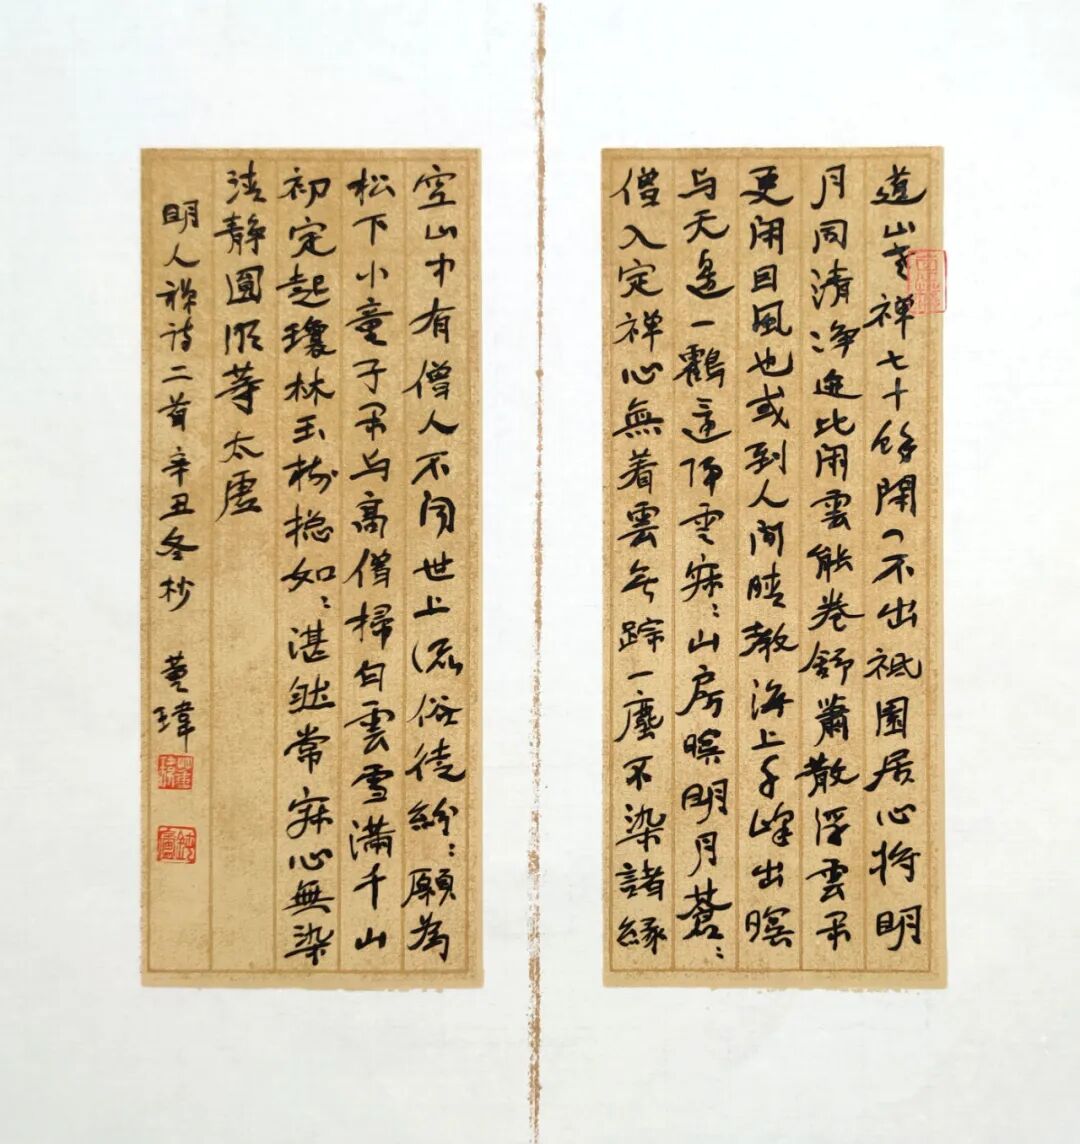 道山老禪七十餘閉门不出祇園居心將明
月同清净迹比閑雲能卷舒蕭散浮雲本
更閑因風也或到人间晴教海上千峰出暝
与天邊一鶴還隔雲寂〻山房暝明月蒼〻
僧入定禅心無着雲无踪一塵不染諸緣
空山中有僧人不问世上流俗徒紛〻願為
松下小童子与高僧掃白雲雪滿千山
初定起瓊林玉樹摠如〻湛然常寂心無染
清静圓明等太虚
明人禅诗二首辛丑冬杪 黄瑋